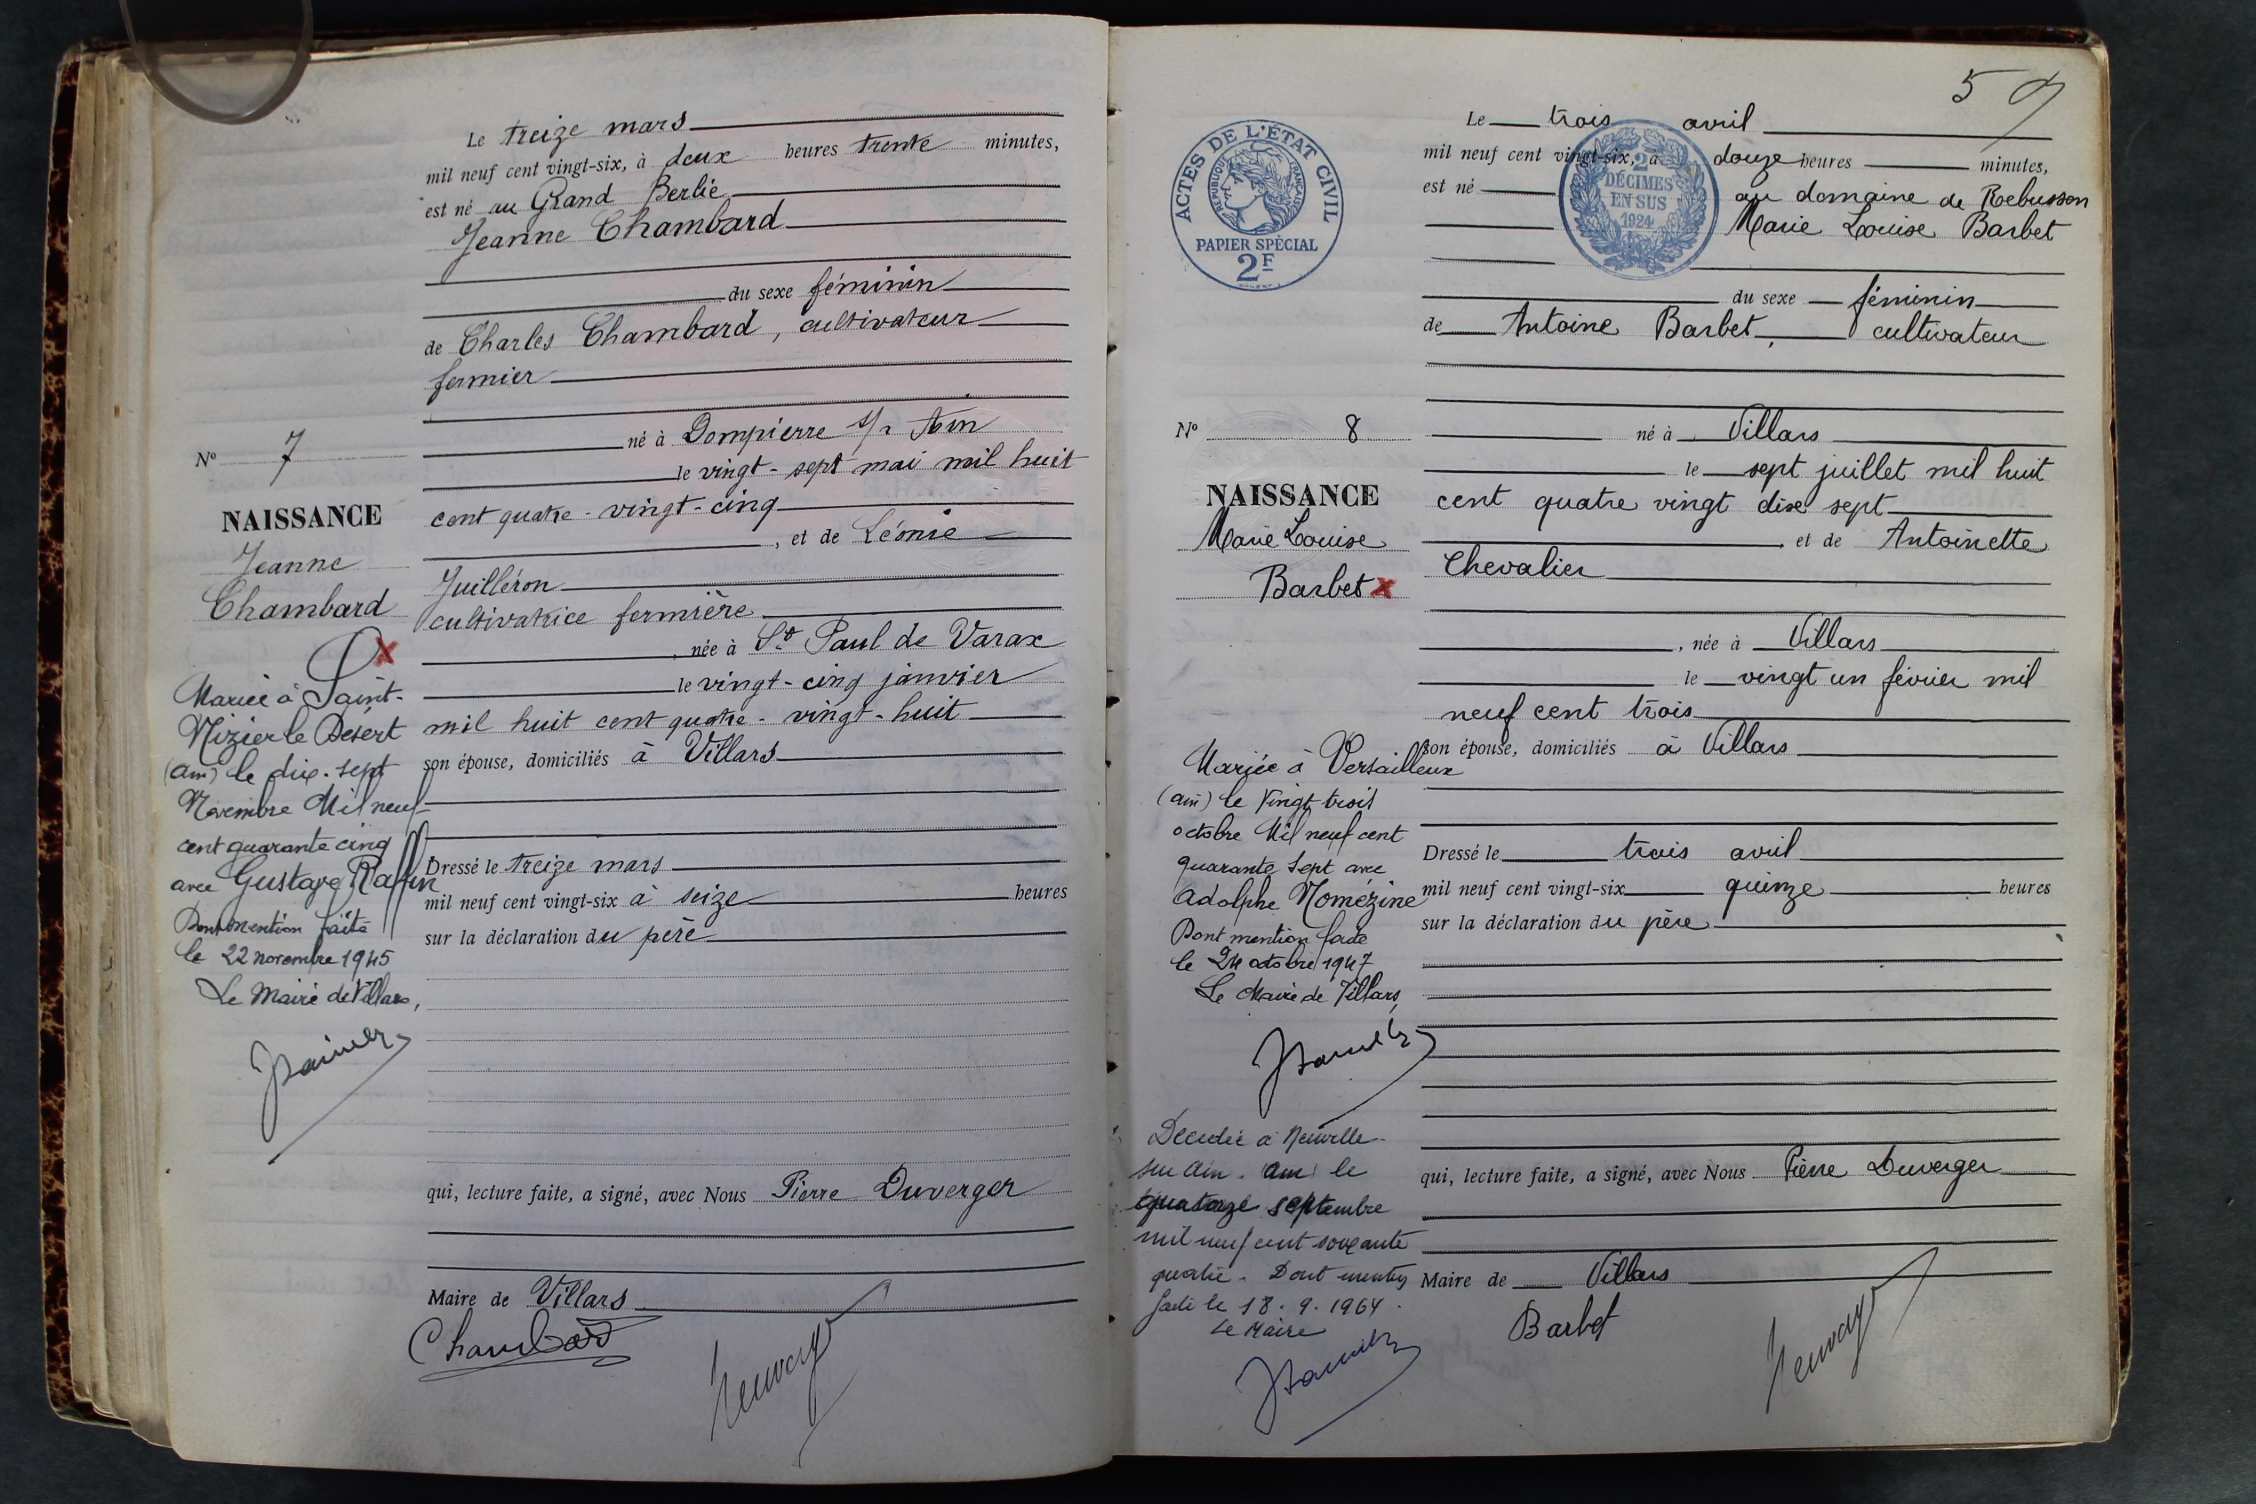 Le treize mars
mil neuf cent vingt-six, à deux heures trente minutes,
est né au Grand Berlie
Jeanne Chambard
du sexe féminin
de Charles Chambard, cultivateur
fermier
né à Dompierre s/r Ain
le vingt-sept mai mil huit
cent quatre-vingt-cinq
, et de Léonie
Juilléron
cultivatrice fermière
, née à St Paul de Varax
le vingt-cinq janvier
mil huit cent quatre-vingt-huit
son épouse, domiciliés à Villars
Dressé le treize mars
mil neuf cent vingt-six à seize heures
sur la déclaration du père
qui, lecture faite, a signé, avec Nous Pierre Duverger
Maire de Villars
Chambard
No 7
NAISSANCE
Jeanne
Chambard
X
Mariée à Saint-
Nizier le Désert
(Ain) le dix-sept
Novembre Mil neuf
cent quarante cinq
avec Gustave Raffin
Dont mention faite
le 22 novembre 1945
Le Maire de Villars,
5
ACTES DE L'ÉTAT CIVIL
RÉPUBLIQUE FRANÇAISE
PAPIER SPÉCIAL
2F
2
DÉCIMES
EN SUS
1924
Le trois avril
mil neuf cent vingt-six, à douze heures minutes,
est né au domaine de Rebusson
Marie Louise Barbet
du sexe féminin
de Antoine Barbet, cultivateur
né à Villars
le sept juillet mil huit
cent quatre vingt dix sept
et de Antoinette
Chevalier
, née à Villars
le vingt un février mil
neuf cent trois
son épouse, domiciliés à Villars
Dressé le trois avril
mil neuf cent vingt-six quinze heures
sur la déclaration du père
qui, lecture faite, a signé, avec Nous Pierre Duverger
Maire de Villars
Barbet
No 8
NAISSANCE
Marie Louise
Barbet X
Mariée à Versailleux
(Ain) le Vingt trois
octobre Mil neuf cent
quarante sept avec
Adolphe Nomézine
Dont mention faite
le 24 octobre 1947
Le Maire de Villars,
Décédée à Neuville
sur Ain. Ain le
quatorze septembre
mil neuf cent soixante
quatre. Dont mention
faite le 18.9.1964.
Le Maire